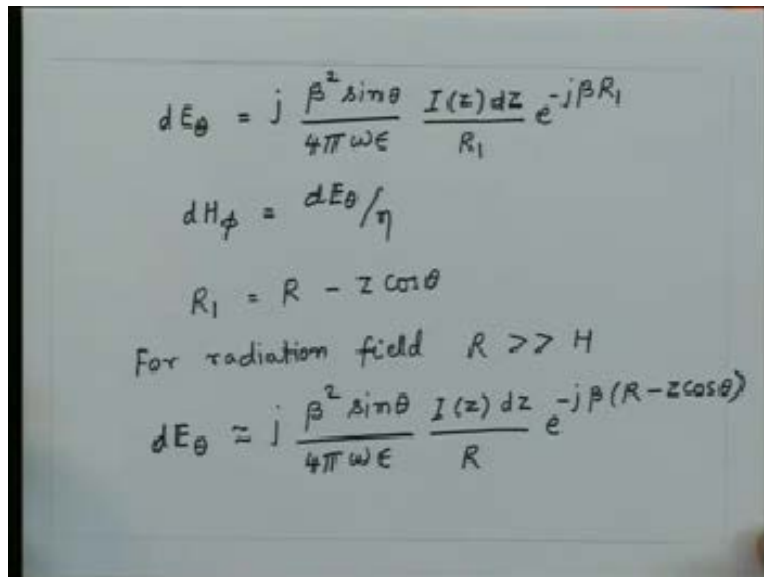 dE_θ = j (β² sinθ)/(4π ω ϵ) (I(z) dz)/(R₁) e^(-jβR₁)
dH_ϕ = dE_θ/η
R₁ = R - z cosθ
For radiation field R >> H
dE_θ ≃ j (β² sinθ)/(4π ω ϵ) (I(z) dz)/(R) e^(-jβ(R-zcosθ))